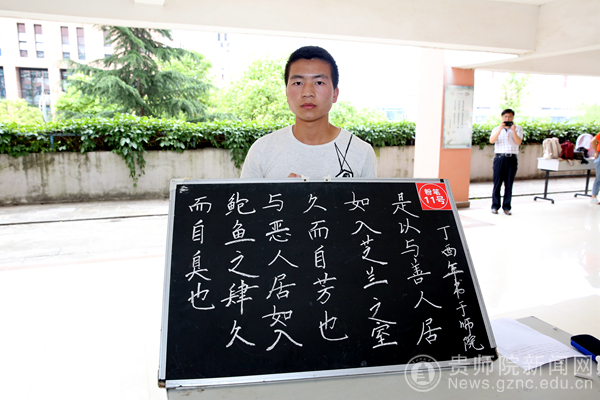 是以与善人居
如入芝兰之室
久而自芳也
与恶人居如入
鲍鱼之肆久
而自臭也
丁酉年书于师院
粉笔
11号
贵师院新闻网
News.gznc.edu.cn